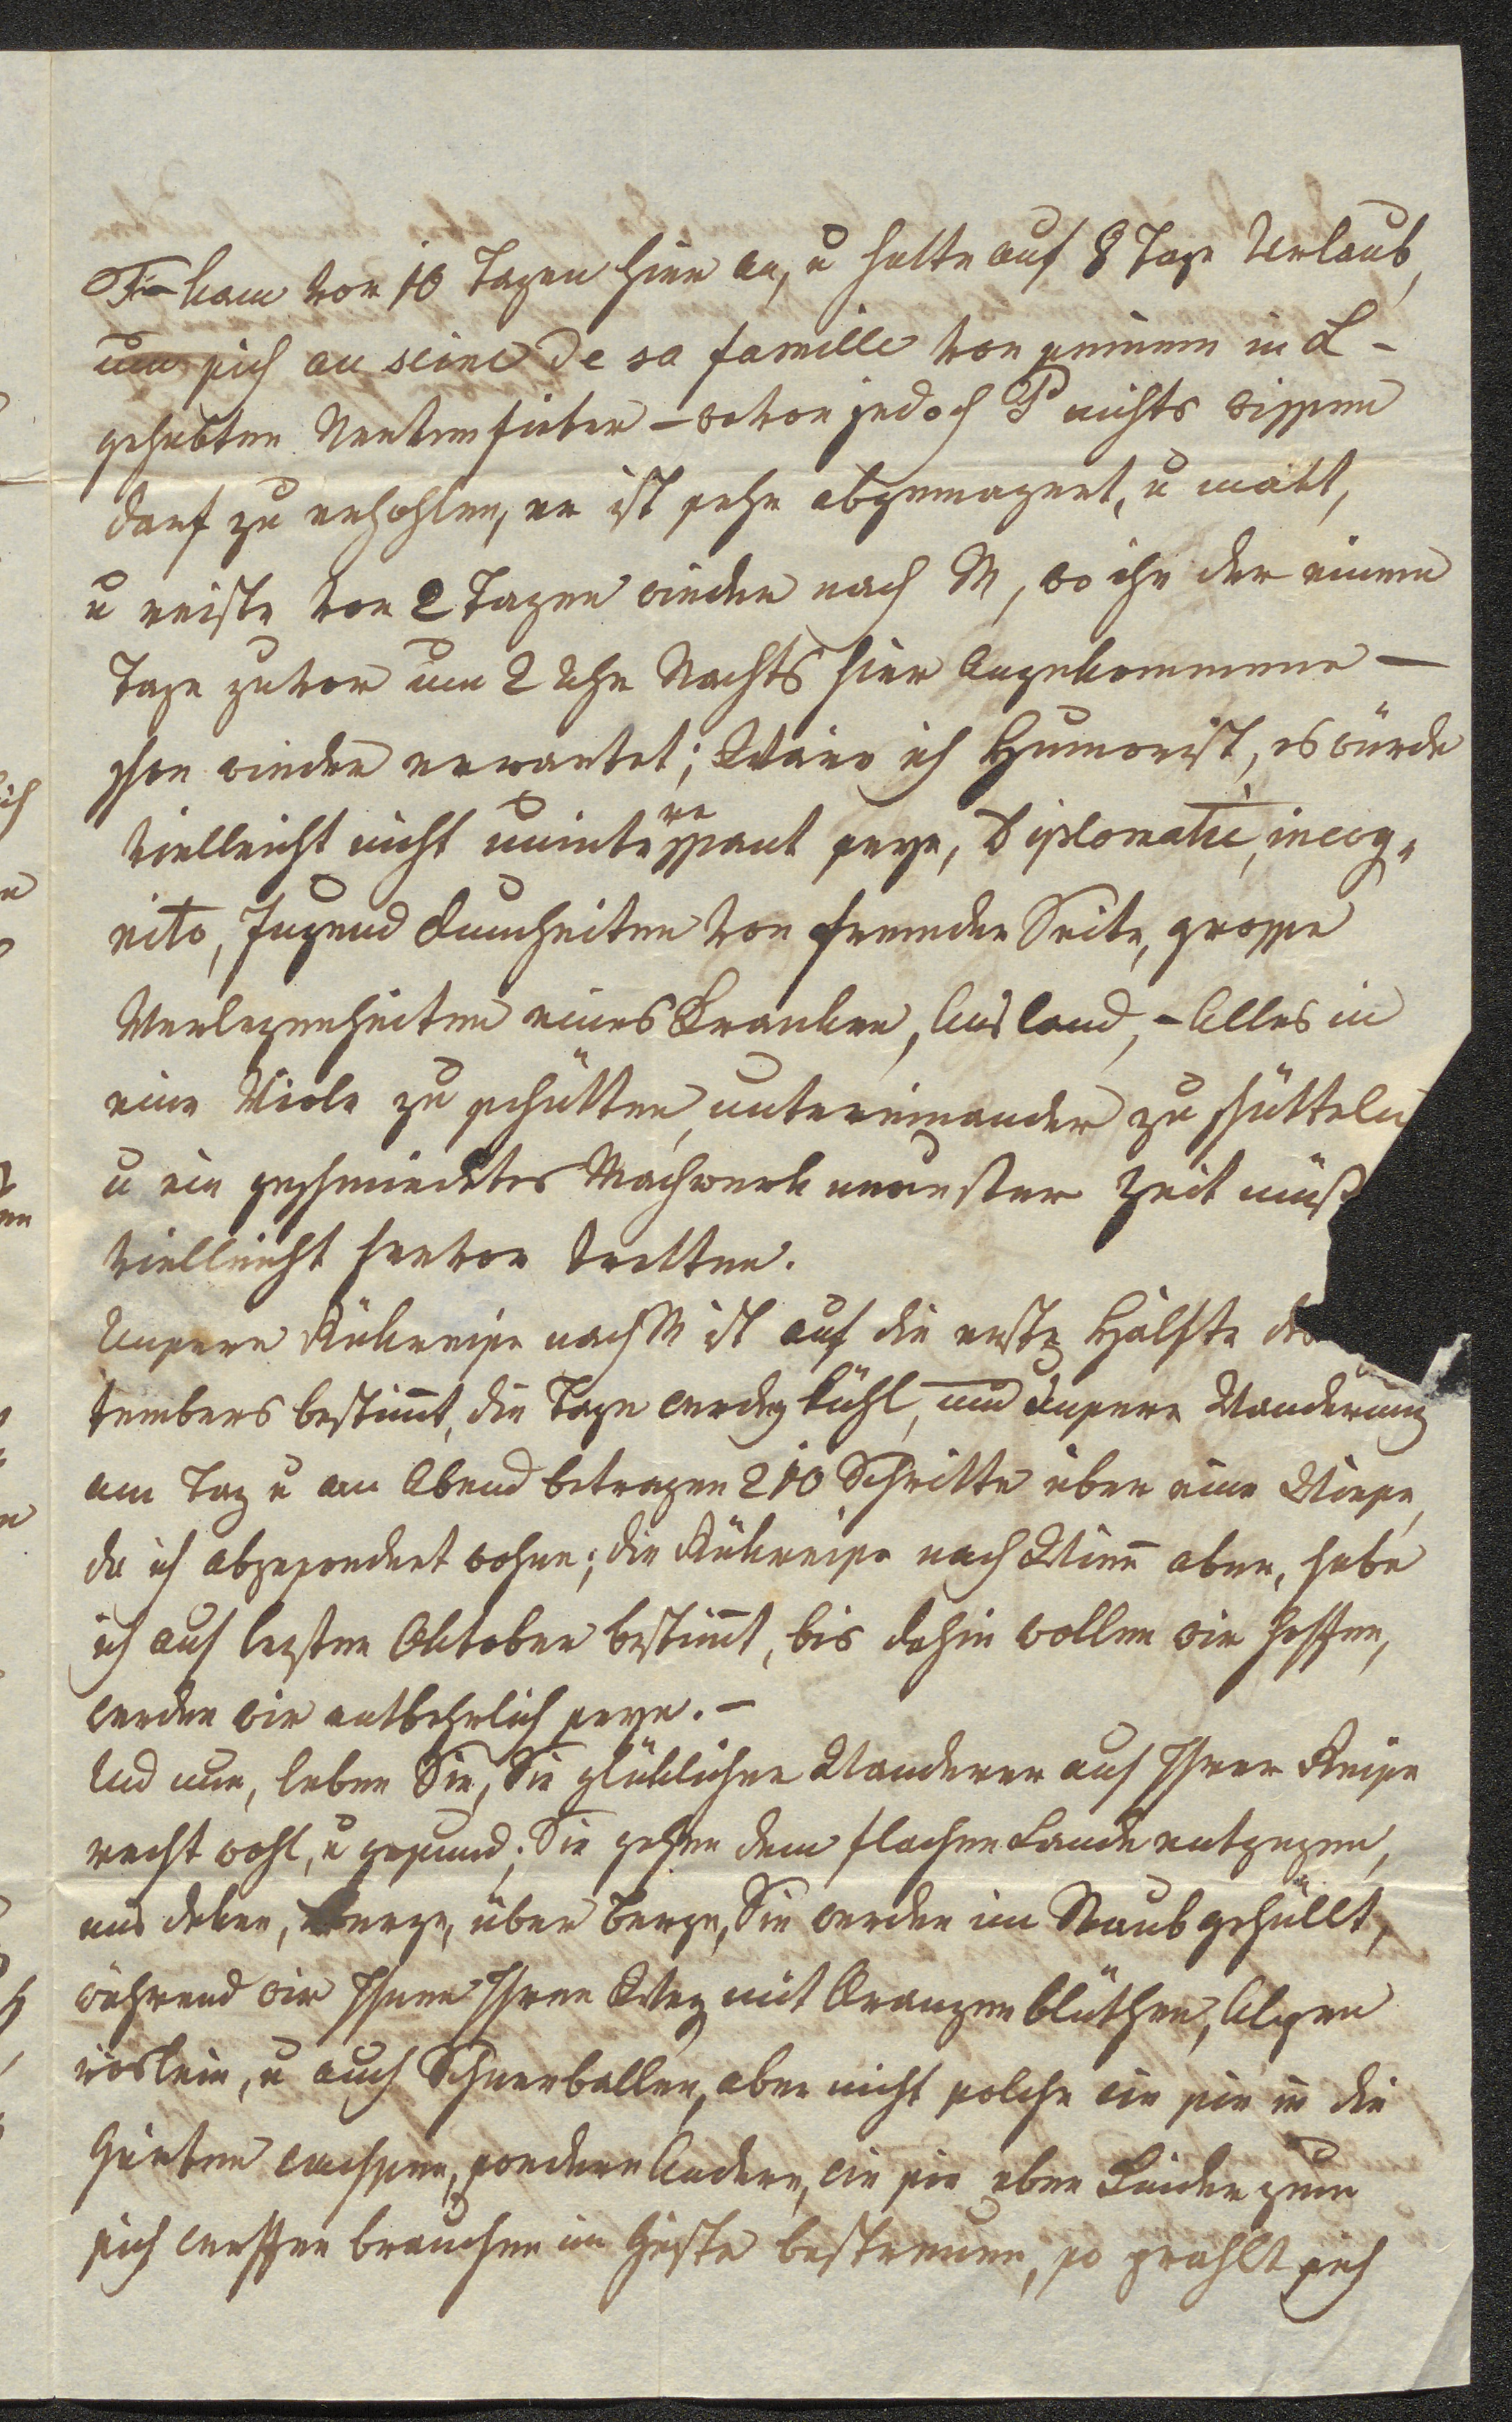 F– kam vor 10 Tagen hier an, u hatte auf 8 Tage Urlaub,
um sich au seine de sa famille von seinem in L –
gehabten Nervenfieber – wovon jedoch P nichts wissen
darf zu erhohlen, er ist sehr abgemagert, u matt,
u reiste vor 2 Tagen wieder nach M, wo ihn der einem
Tage zuvor um 2 Uhr Nachts hier Angekommene –
schon wieder erwartet; Wäre ich Humorist, es würde
vielleicht nicht uninteressant seyn, Diplomatie, incog¬
nito, Jugend dumheiten von fremder Seite, grosse
Verlegenheiten eines Kranken, Ausland, – Alles in
eine Viole zu schütten, untereinander zu schütteln
u ein geschmiedetes Machwerk neuester Zeit müß
vielleicht hervor tretten.
Unsere Rükreise nach M ist auf die erste Hälfte des
tembers bestimt, die Tage werden kühl, und unsere Wanderung
am Tag u am Abend betragen 210 Schritte über eine Wiese,
da ich abgesondert wohne; die Rükreise nach Wien aber, habe
ich auf lezten Oktober bestimt, bis dahin wollen wir hoffen,
werden wir entbehrlich seyn. –
Und nun, leben Sie, Sie glüklicher Wanderer auf Ihrer Reise
recht wohl, u gesund; Sie gehen dem flachen Lande entgegen,
uns deken, Berge, über Berge, Sie werden im Staub gehüllt,
während wir Ihnen Ihren Weg mit Orangenblüthen, Alpen
röslein, u auch Schneeballen, aber nicht solche wie sie in die
Gärten wachsen, sondern Andere, wie sie eben Kinder zum
sich werffen brauchen im Geiste bestreuen, so prahlt sich